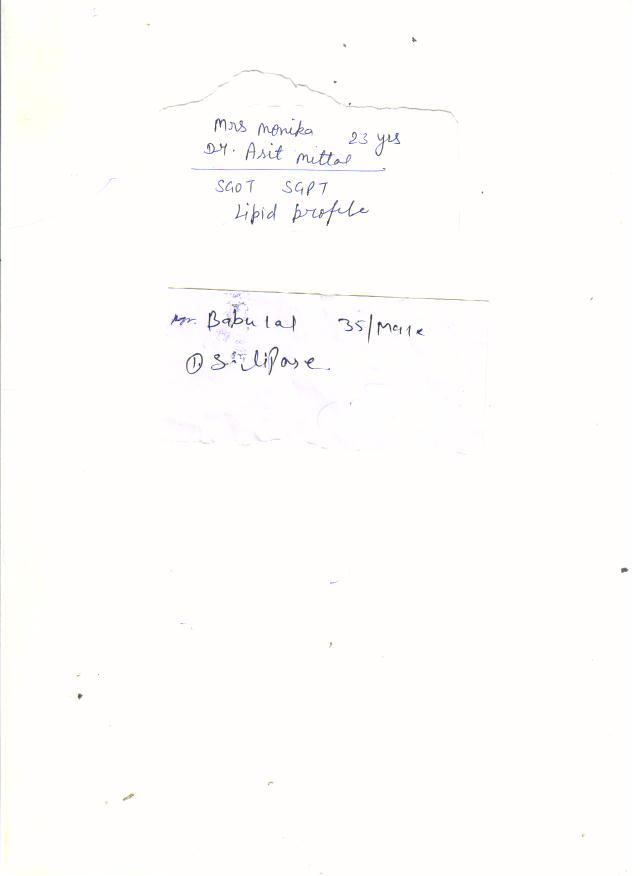 Mrs Monika 23 yrs
Dr. Asit Mittal
SGOT SGPT
Lipid profile
Mr. Babulal 35/Male
① S. lipase